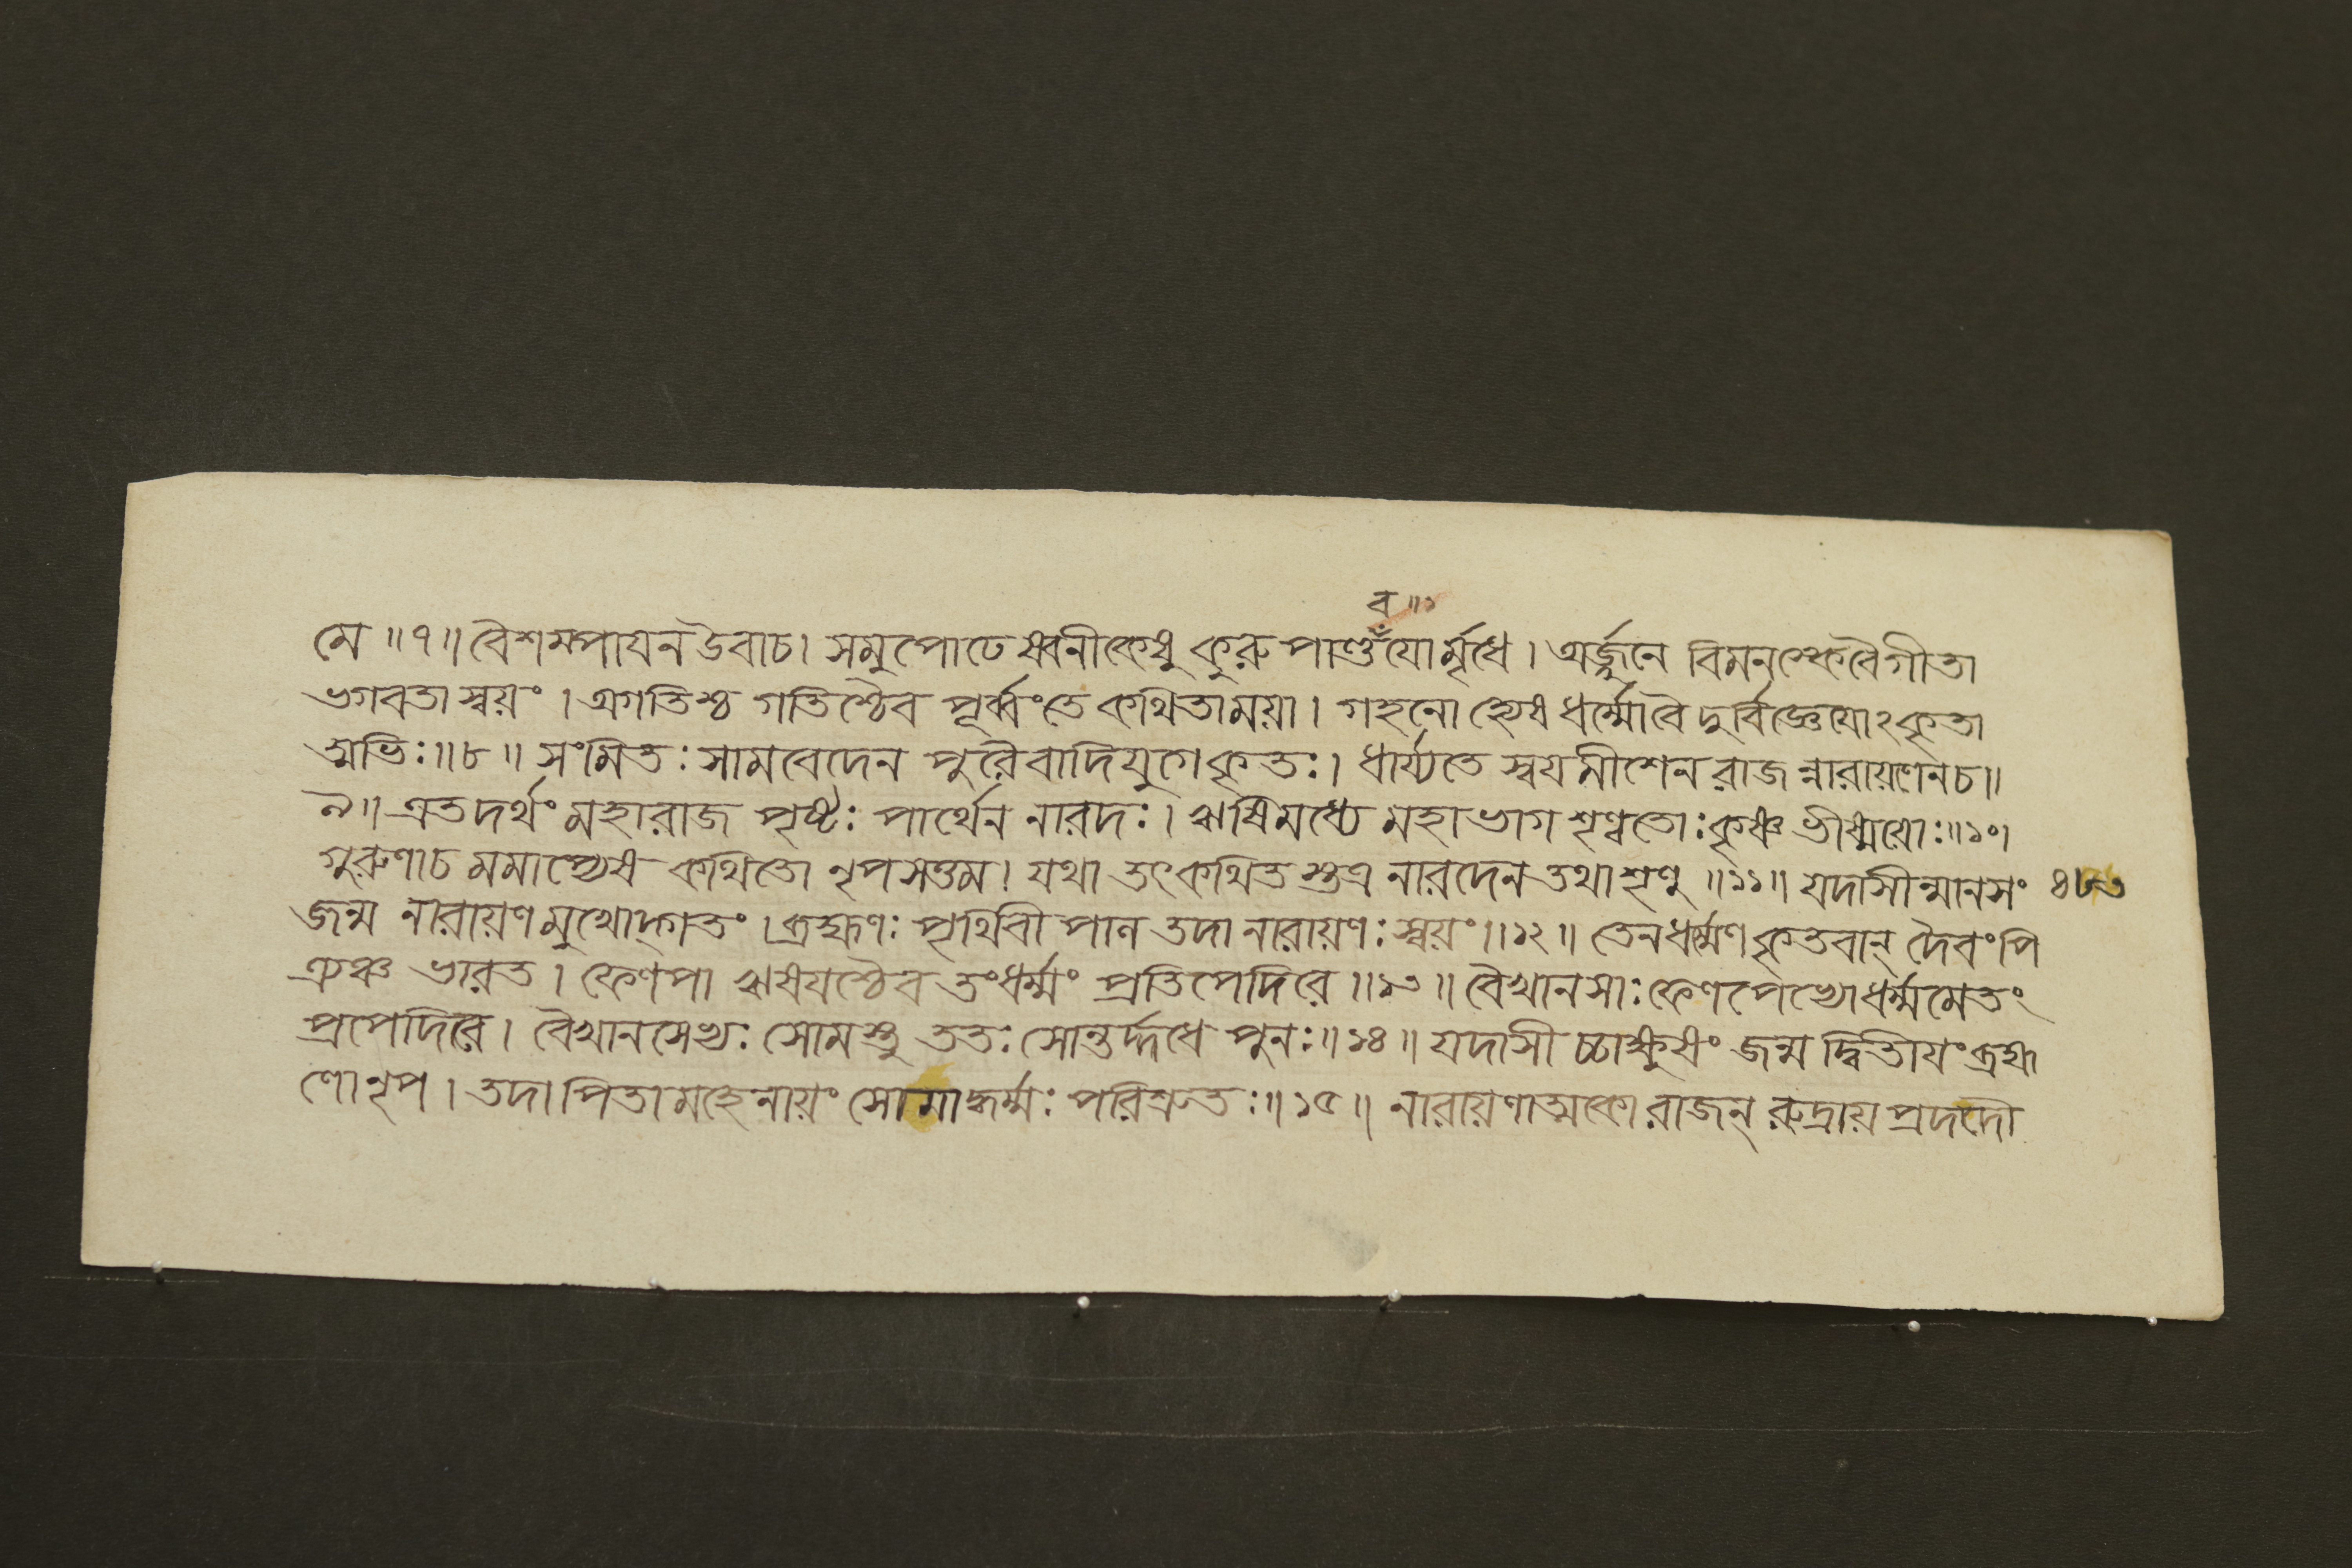 ব॥১
মে ॥৭॥ বৈশম্পায়ন উবাচ। সমুপোঢেষ্বনীকেষু কুরু পাণ্ডঁযোর্মৃধে। অর্জ্জুনে বিমনস্কেবৈগীতা
ভগবতা স্বয়ং। অগতিশ্চ গতিশ্চৈব পূর্ব্বংতে কথিতাময়া। গহনো হ্যেষ ধর্ম্মোবৈ দুর্বিজ্ঞেযোঽকৃতা
ত্মভিঃ॥৮॥ সংমিতঃ সামবেদেন পুরৈবাদিযুগে কৃতঃ। ধার্য্যতে স্বযমীশেন রাজন্নারায়ণেনচ॥
৯॥ এতদর্থং মহারাজ পৃষ্টঃ পার্থেন নারদঃ। ঋষিমধ্যে মহাভাগ শৃণ্বতোঃ কৃষ্ণ ভীষ্মযোঃ॥১০।
গুরুণাচ মমাপ্যেষ কথিতো নৃপসত্তম। যথা তৎকথিতস্তত্র নারদেন তথাশৃণু ॥১১॥ যদাসীন্মানসং ৪৮৩
জন্ম নারায়ণ মুখোদ্গতং। ব্রহ্মণঃ পৃথিবী পান তদা নারায়ণঃ স্বয়ং।।১২॥ তেনধর্ম্মণ কৃতবান্ দৈবংপি
ত্র্যঞ্চ ভারত। ফেণপা ঋষযশ্চৈব তংধর্ম্মং প্রতিপেদিরে ॥১৩॥ বৈখানসাঃ ফেণপেভ্যোধর্ম্মমেতং
প্রপেদিরে। বৈখানসেভ্যঃ সোমস্তু ততঃ সোন্তর্দ্দধে পুনঃ॥১৪॥ যদাসী চ্চাক্ষুষং জন্ম দ্বিতীযং ব্রহ্ম
ণো নৃপ। তদা পিতামহেনায়ং সোমাদ্ধর্ম্মঃ পরিশ্রুতঃ॥১৫॥ নারায়ণাত্মকো রাজন্ রুদ্রায় প্রদদৌ